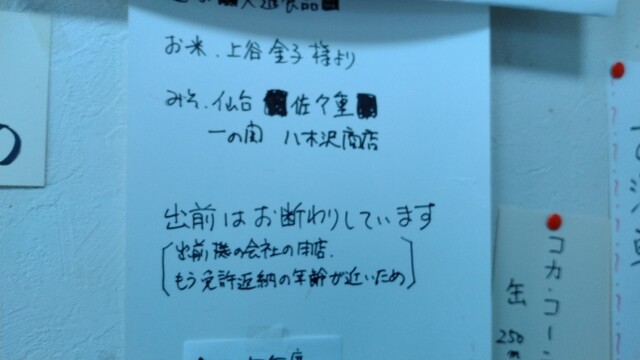 お米、上谷金子様より
みそ、仙台 佐々重
一の関 八木沢商店
出前はお断わりしています
出前機の会社の閉店、
もう免許返納の年齢が近いため
コカ・コー
缶
250